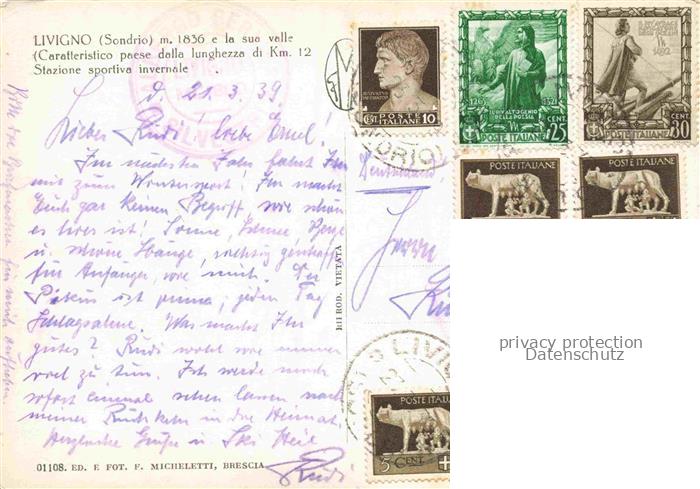 LIVIGNO (Sondrio) m. 1836 e la sua valle
(Caratteristico paese dalla lunghezza di Km. 12
Stazione sportiva invernale
d. 21.3.39
Lieber Rudi! Liebe Emel!
Im nächsten Jahr fahrt Ihr
mit zum Wintersport! Ihr macht
Euch gar keinen Begriff wie schön
es hier ist! Sonne, Schnee, Berge
u. schöne Hänge, richtig geschaffen
für Anfänger, wie mich. Der
ist prima; jeden Tag
Schlagsahne. Was macht Ihr
gutes? Rudi wohl wie immer
viel zu tun. Ich werde mich
sofort einmal sehen lassen nach
meiner Rückkehr in die Heimat.
Herzliche Grüße u. Ski Heil
Rudi
Bitte die Briefmarken für mich aufheben
01108. ED. E FOT. F. MICHELETTI, BRESCIA
RIPROD. VIETATA
Deutschland
CENT. POSTE ITALIANE 10
POSTE ITALIANE CENT. 25
CENT. 30
POSTE ITALIANE
POSTE ITALIANE
LIVI
POSTE ITALIANE
5 CENT.
privacy protection
Datenschutz